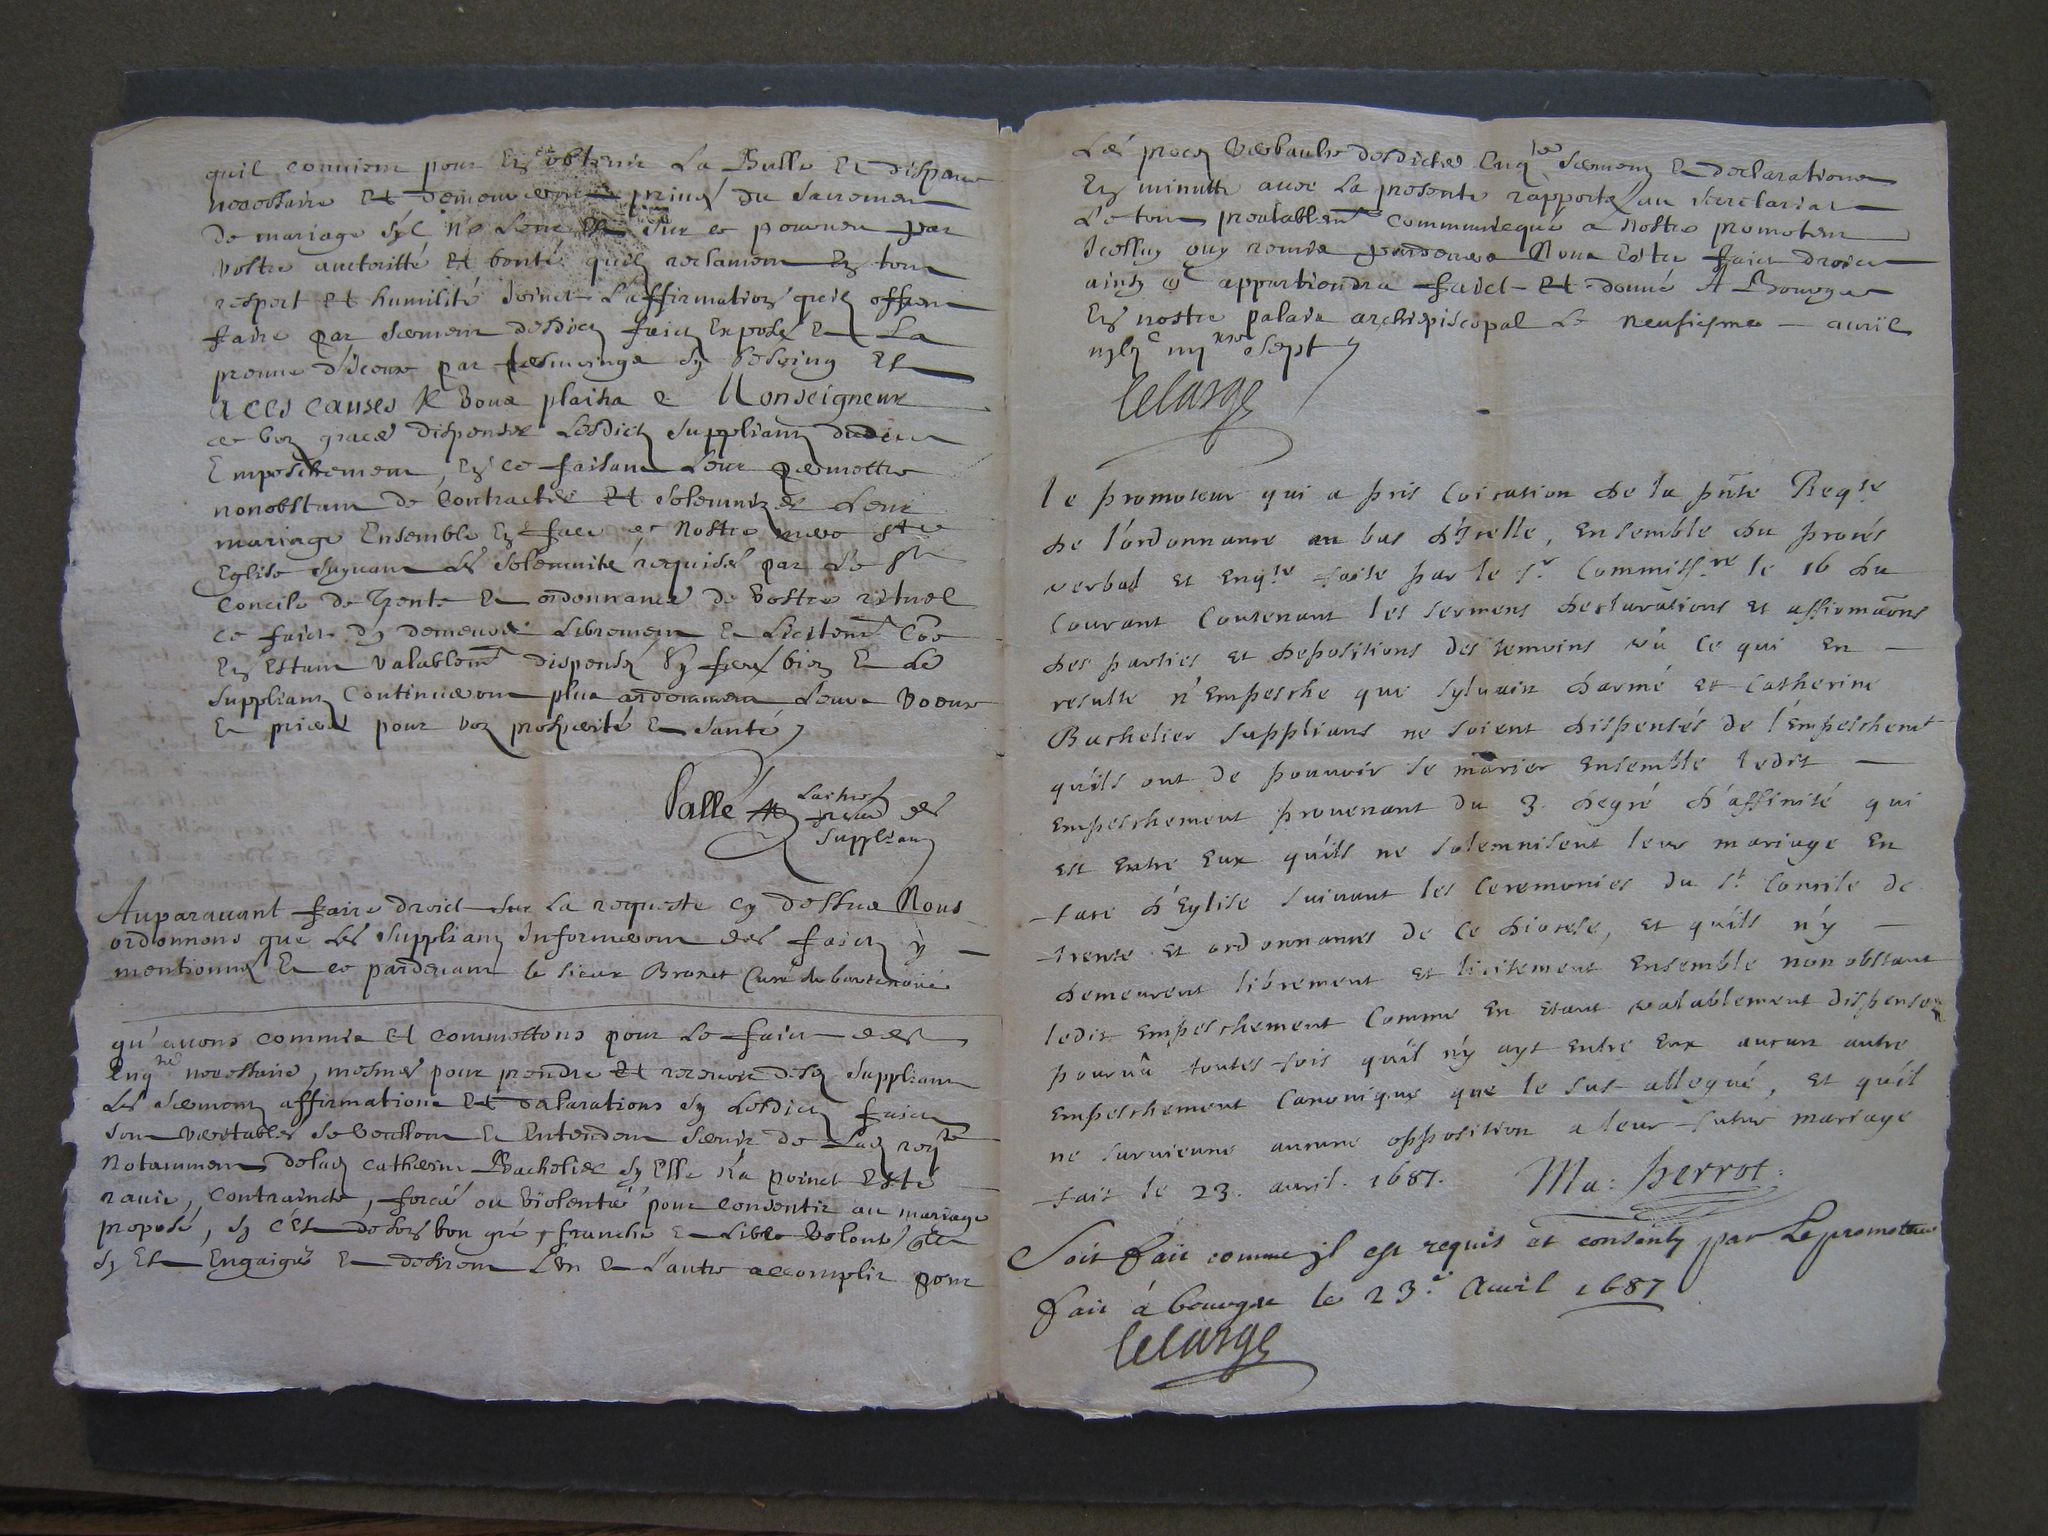 quil convient pour En obtenir La Bulle Et dispance
necessaire Et demeureront privez du sacrement
de mariage syl ne Leur Est sur ce pourveu par
vostre auctoritté Et bonté quilz reclament En tout
respect Et humilité Joinct L'affirmation quilz offrent
faire par serment desdictz faictz Exposez Et La
preuve d'iceux par tesmoings sy besoing Est
A ces causes Il vous plaira Monseigneur
de voz graces dispenser Lesdictz suppliantz dudict
Empeschement, En ce faisant Leur permettre
nonobstant de Contracter Et solemnizer Leur
mariage Ensemble En face de Nostre mere Ste
Eglise suyvant Les solemnités requises par Le St
Concile de Trente Et ordonnances de vostre rituel
ce faict dy demeurer Librement Et Licitemt Coe
En Estant valablemt dispensez Sy ferez bien Et Les
suppliantz Continueront plus ardemment Leurs voeux
Et prieres pour voz prosperité Et santé
Pallé
des
suppliantz
Auparavant faire droict sur La requeste cy dessus Nous
ordonnons que Les suppliantz Informeront des faictz y
mentionnez Et ce pardevant le sieur Curé de
qu'avons commis Et commettons pour Le faict des
Enqtes necessaires, mesmes pour prendre Et recevoir desdz suppliantz
Les sermentz affirmations Et declarations sy Lesdictz faictz
sont veritables se veullent Et Entendent servir de Lad reqte
Notamment de lad catherine Bachelier sy Elle n'a poinct Esté
ravie, contraincte, forcée ou violentée pour consentir au mariage
proposé, sy c'est de son bon gré, franche Et Libre volonté
sy Est Engaigée Et desirent L'un Et L'autre accomplir pour
Les proces verbaulx desdictes Enqtes serment Et declarations
En minutte avec La presente rapportez au secretariat
Le tout prealablemt Communicqué a Nostre promoteur
Icelluy ouy renvoye pardevers Nous Estre faict droict
ainsy qe appartiendra faict Et donné A Bourges
En nostre palais archiepiscopal Le neufiesme avril
sept
Lelarge
le promoteur qui a pris Coication de la pnte Reqte
de l'ordonnance au bas d'Icelle, Ensemble du procés
verbal Et Enqte faite par le sr Commissre le 16 du
Courant Contenant les sermens declarations Et affirmaons
des parties Et depositions des temoins vû Ce qui En
resulte n'Empesche que sylvain darmé Et Catherine
Bachelier supplians ne soient dispensés de l'Empeschemt
qu'ils ont de pouvoir se marier Ensemble ledit
Empeschement provenant du 3. degré d'affinité qui
est Entre Eux qu'ils ne solemnisent leur mariage En
face d'Eglise suivant les Ceremonies du st. Concile de
trente Et ordonnances de Ce diocese, Et qu'ils n'y
demeurent librement Et licitement Ensemble nonobstant
ledit Empeschement Comme En Etant valablement dispensez
pourvû toutes fois qu'il n'y ayt Entre Eux aucun autre
Empeschement Canonique que le sus allegué, Et qu'il
ne survienne aucune opposition a leur futur mariage
fait le 23. avril. 1687. Ma: perrot.
Soit fait comme jl est requis et consenty par Le promoteur
fait à bourges le 23.e Avril 1687
Lelarge